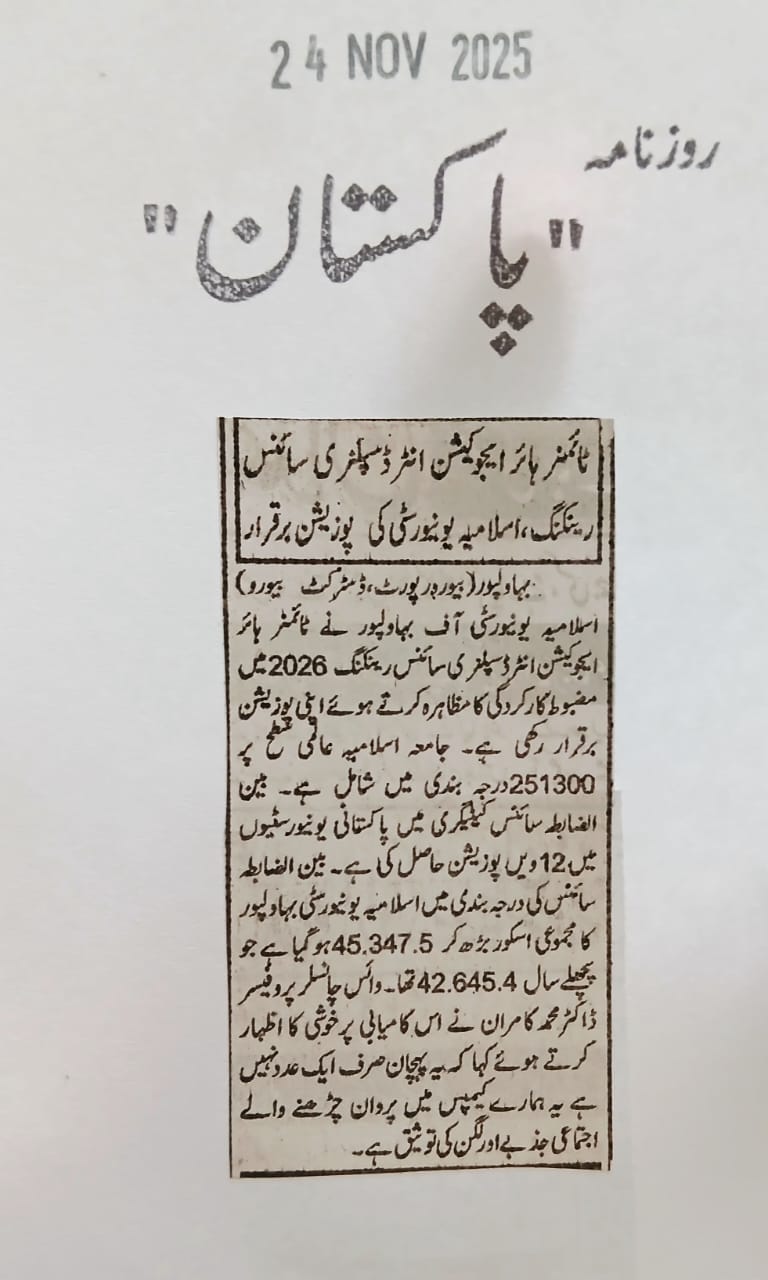 24 NOV 2025
روزنامہ
"پاکستان"
ٹائمنر ہائر ایجوکیشن انٹرڈسپلنری سائنس
رینکنگ،اسلامیہ یونیورسٹی کی پوزیشن برقرار
بہاولپور(بیورورپورٹ،ڈسٹرکٹ بیورو)
اسلامیہ یونیورسٹی آف بہاولپور نے ٹائمنر ہائر
ایجوکیشن انٹرڈسپلنری سائنس رینکنگ 2026میں
مضبوط کارکردگی کا مظاہرہ کرتے ہوئے اپنی پوزیشن
برقرار رکھی ہے۔ جامعہ اسلامیہ عالمی سطح پر
251300درجہ بندی میں شامل ہے۔ بین
الضابطہ سائنس کیٹیگری میں پاکستانی یونیورسٹیوں
میں 12ویں پوزیشن حاصل کی ہے۔ بین الضابطہ
سائنس کی درجہ بندی میں اسلامیہ یونیورسٹی بہاولپور
کا مجموعی اسکور بڑھ کر 45.347.5ہو گیا ہے جو
پچھلے سال 42.645.4تھا۔ وائس چانسلر پروفیسر
ڈاکٹر محمد کامران نے اس کامیابی پر خوشی کا اظہار
کرتے ہوئے کہا کہ یہ پہچان صرف ایک عدد نہیں
ہے یہ ہمارے کیمپس میں پروان چڑھنے والے
اجتماعی جذبے اور لگن کی توثیق ہے۔